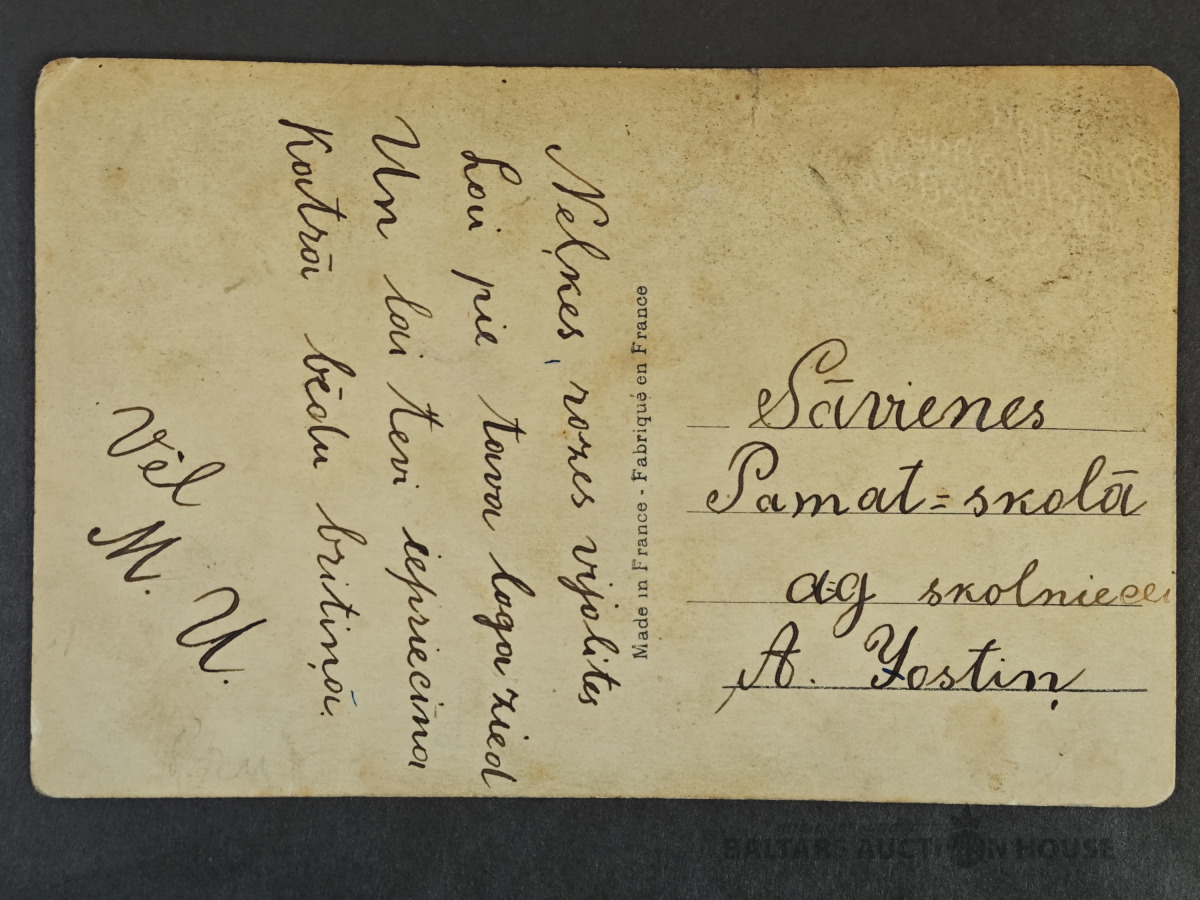 Neļķes, rozes vijolites
Lai pie tava loga zied
Un lai tevi iepriecina
Katrā bēdu britiņā.
Vēl
M. U.
Made in France - Fabriqué en France
Sāvienes
Pamat=skolā
skolniecei
A. Jostiņ
BALTARS AUCTION HOUSE